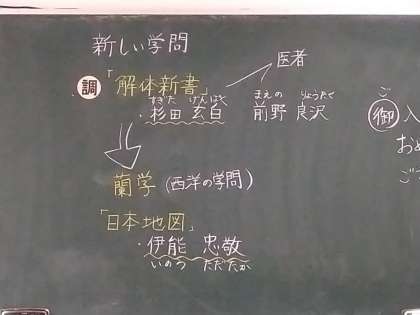 新しい学問
調「解体新書」
医者
すぎた げんぱく
・杉田 玄白
まえの りょうたく
前野 良沢
蘭学（西洋の学問）
「日本地図」
・伊能 忠敬
いのう ただたか
ご
御入
おめ
ご